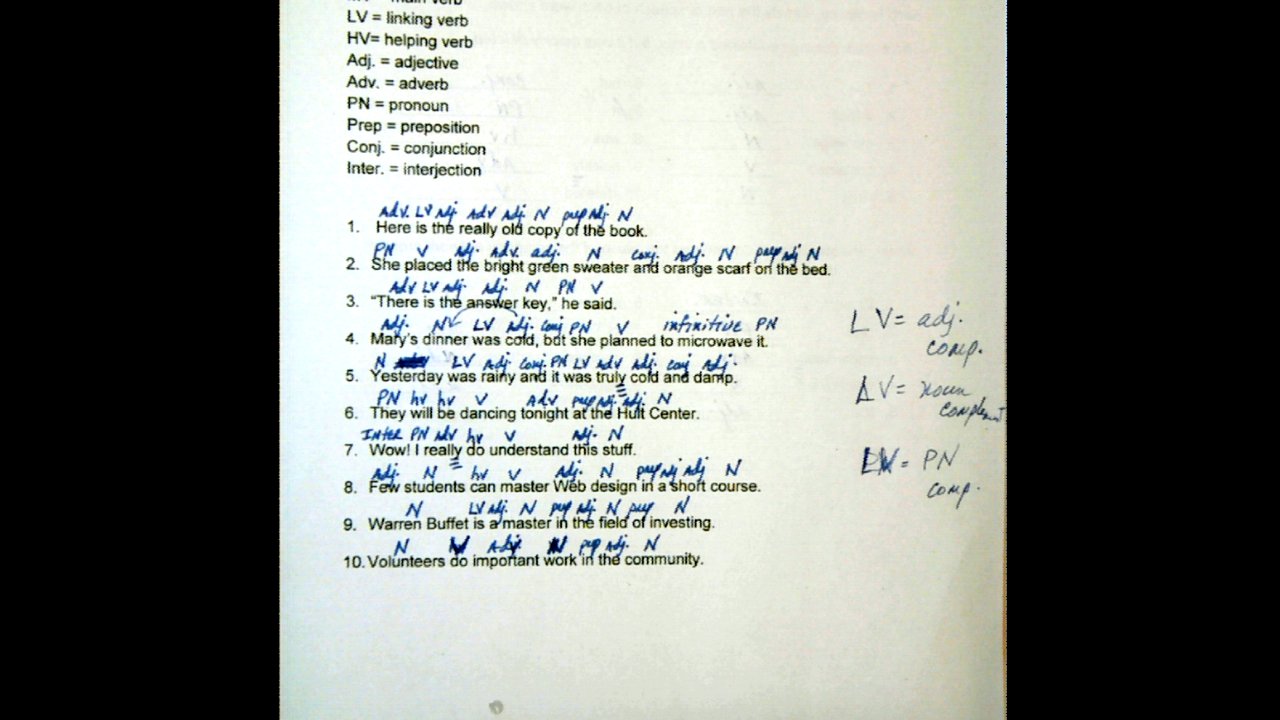 main verb
LV = linking verb
HV= helping verb
Adj. = adjective
Adv. = adverb
PN = pronoun
Prep = preposition
Conj. = conjunction
Inter. = interjection
Adv. LV Adj. Adv Adj. N prep Adj. N
1. Here is the really old copy of the book.
PN V Adj. Adv. adj. N conj. Adj. N prep adj N
2. She placed the bright green sweater and orange scarf on the bed.
Adv LV Adj. Adj. N PN V
3. "There is the answer key," he said.
Adj. N LV Adj. conj PN V infinitive PN
4. Mary's dinner was cold, but she planned to microwave it.
N LV Adj. conj. PN LV Adv Adj. conj Adj.
5. Yesterday was rainy and it was truly cold and damp.
PN hv hv V Adv prep Adj. Adj. N
6. They will be dancing tonight at the Hult Center.
Inter PN adv hv V Adj. N
7. Wow! I really do understand this stuff.
Adj. N hv V Adj. N prep adj adj N
8. Few students can master Web design in a short course.
N LV Adj. N prep Adj. N prep N
9. Warren Buffet is a master in the field of investing.
N V Adj. N prep Adj. N
10. Volunteers do important work in the community.
LV = adj.
comp.
LV = noun
complement
LV = PN
comp.